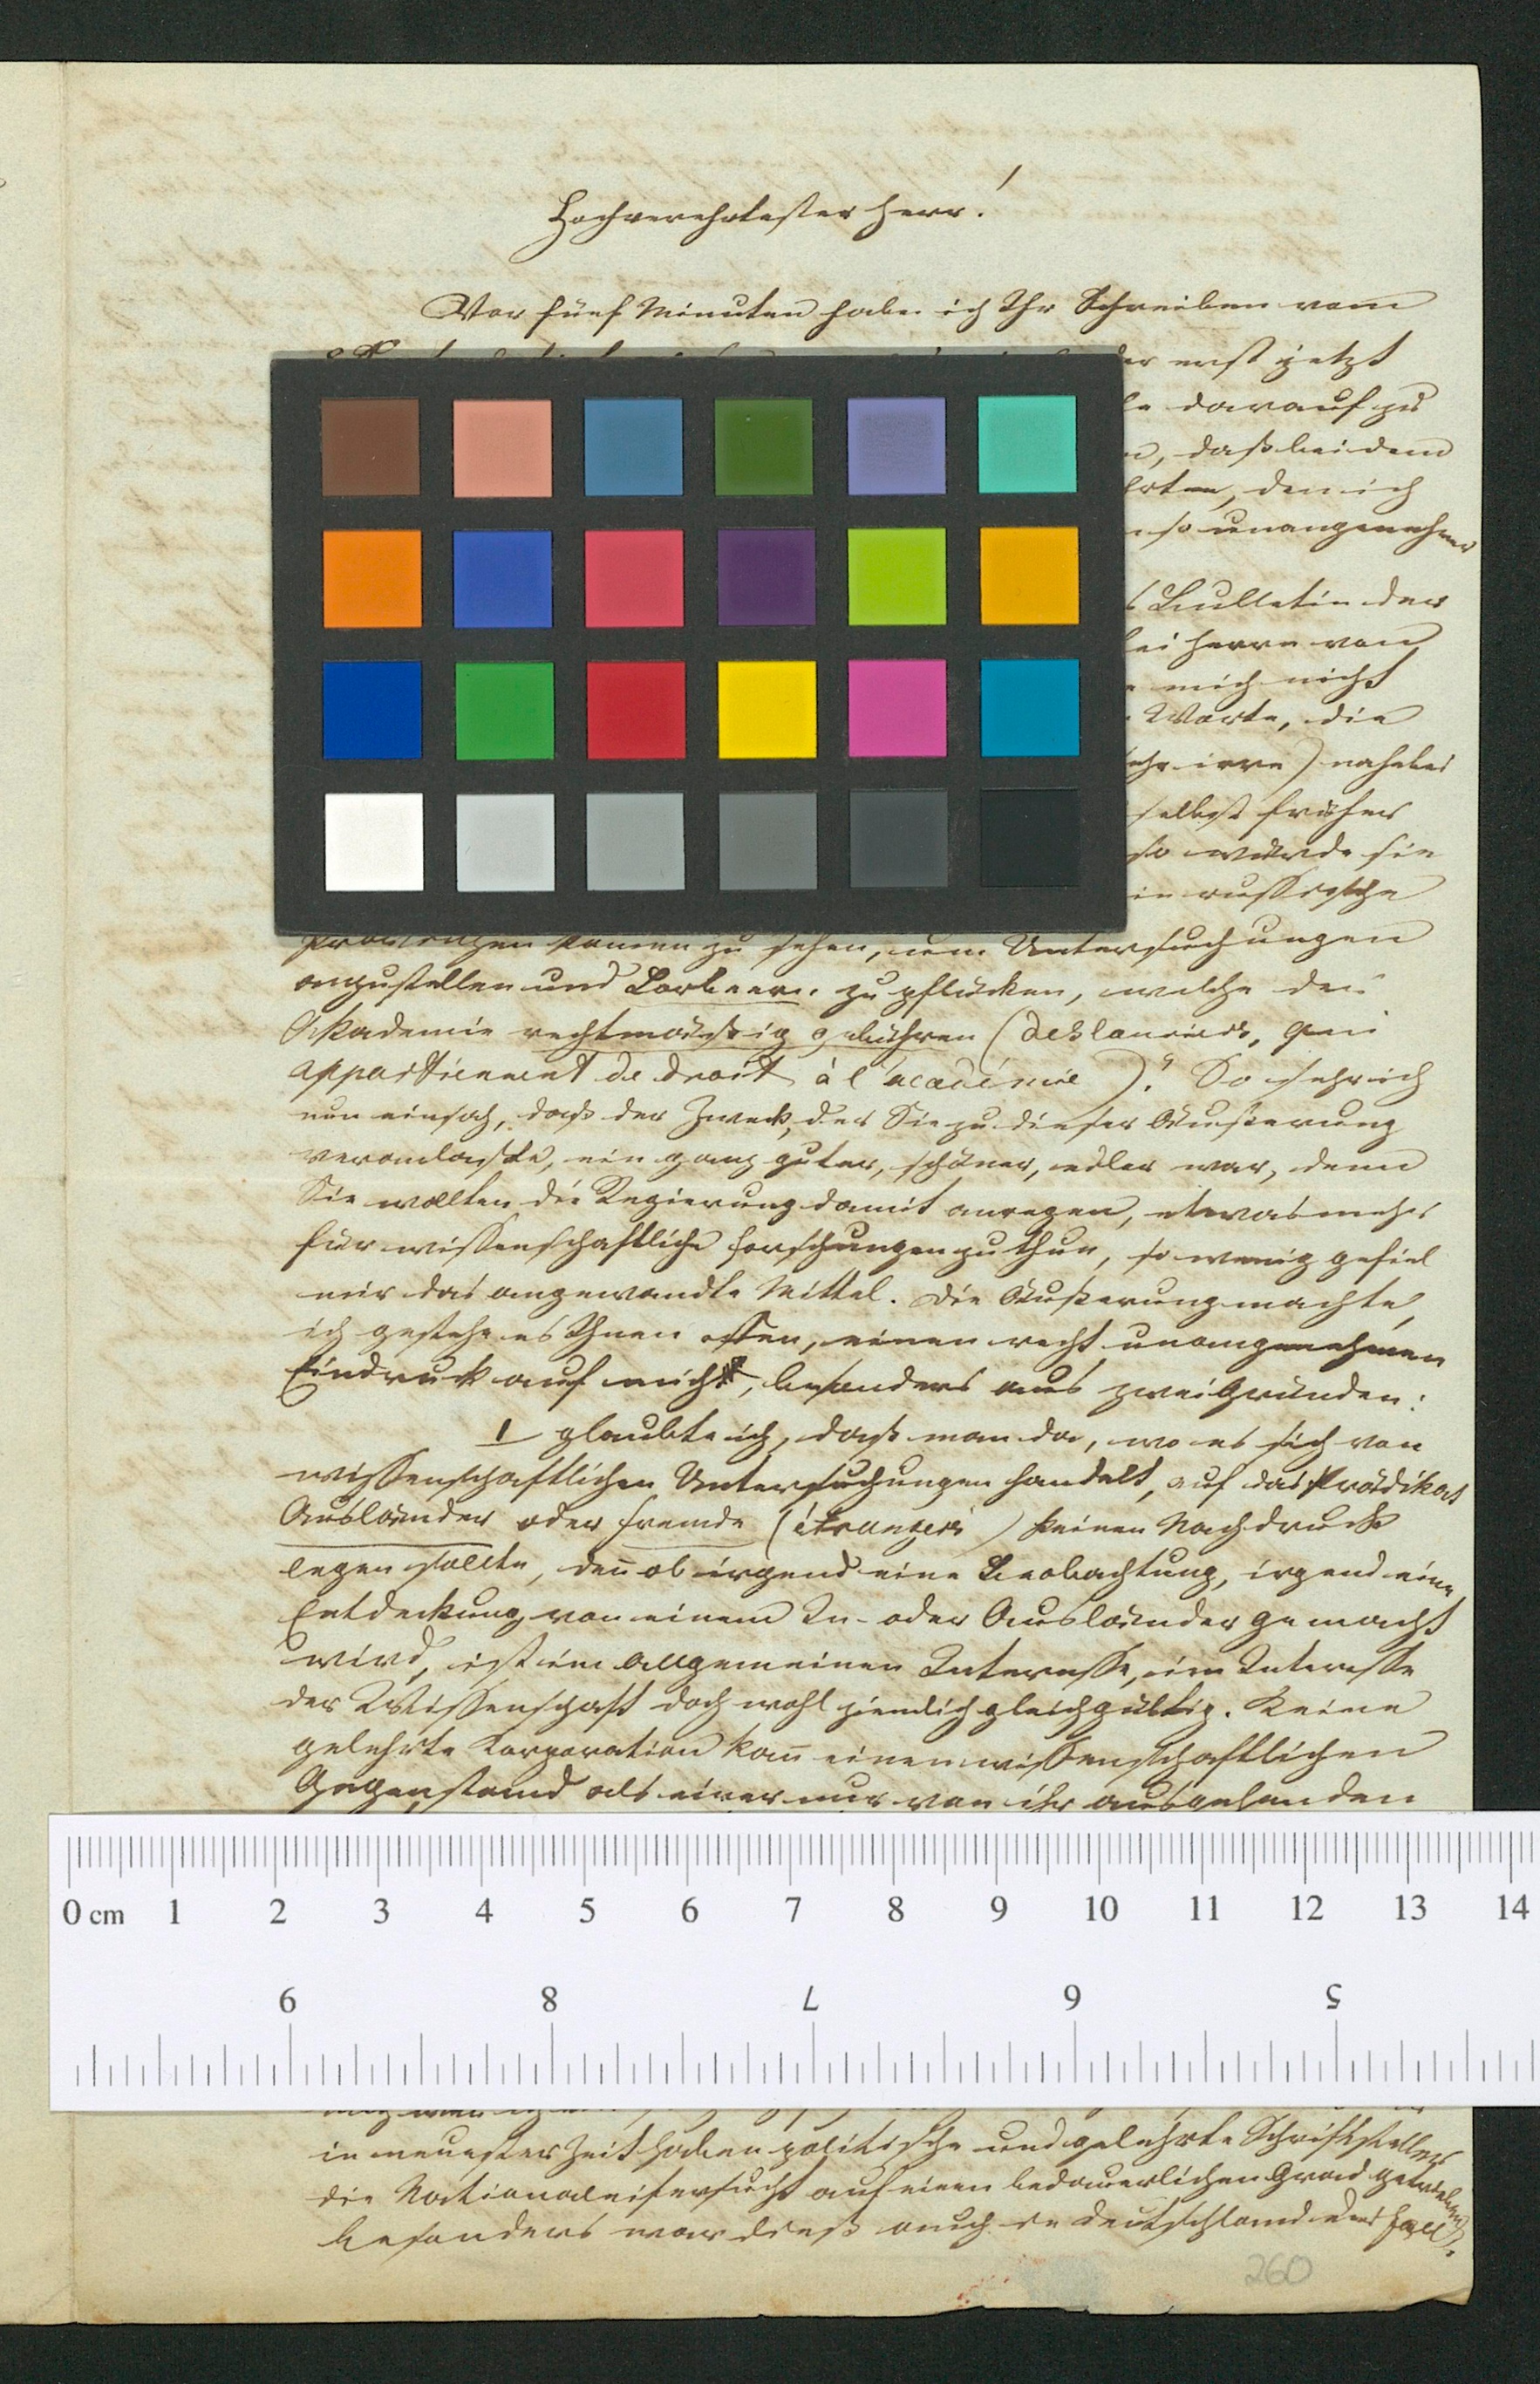 Hochverehrtester Herr!
Vor fünf Minuten habe ich Ihr Schreiben vom
erst jetzt
darauf zu
, daß bei dem
, den ich
so unangenehmer
Bulletin der
bei Herrn von
mich nicht
Worte, die
irre) nahebei
selbst früher
so würde sie
in russische
Provinzen kommen zu sehen, um Untersuchungen
anzustellen und Lorbeern zu pflücken, welche der
Akademie rechtmäßig gebühren (des lauriers, qui
appartiennent de droit à l'académie)." So sehr ich
nun einsah, daß der Zweck, der Sie zu dieser Äußerung
veranlaßte, ein ganz guter, schöner, edler war, denn
Sie wollten die Regierung damit anregen, etwas mehr
für wissenschaftliche Forschungen zu thun, so wenig gefiel
mir das angewandte Mittel. Die Äußerung machte,
ich gestehe es Ihnen offen, einen recht unangenehmen
Eindruck auf mich, besonders aus zwei Gründen:
1 glaubte ich, daß man da, wo es sich von
wissenschaftlichen Untersuchungen handelt, auf das Prädikat
Ausländer oder Fremde (étrangers) keinen Nachdruck
legen sollte, deñ ob irgend eine Beobachtung, irgend eine
Entdeckung von einem In- oder Ausländer gemacht
wird, ist im allgemeinen Interesse, im Interesse
der Wissenschaft doch wohl ziemlich gleichgültig. Keine
gelehrte Korporation kañ einen wissenschaftlichen
Gegenstand als einer nur von ihr ausgehenden
0 cm 1 2 3 4 5 6 7 8 9 10 11 12 13 14
9 8 7 6 5
in neuester Zeit haben politische und gelehrte Schriftsteller
die Nationaleifersucht auf einen bedauerlichen Grad getrieben,
besonders war dieß auch in Deutschland der Fall.
260